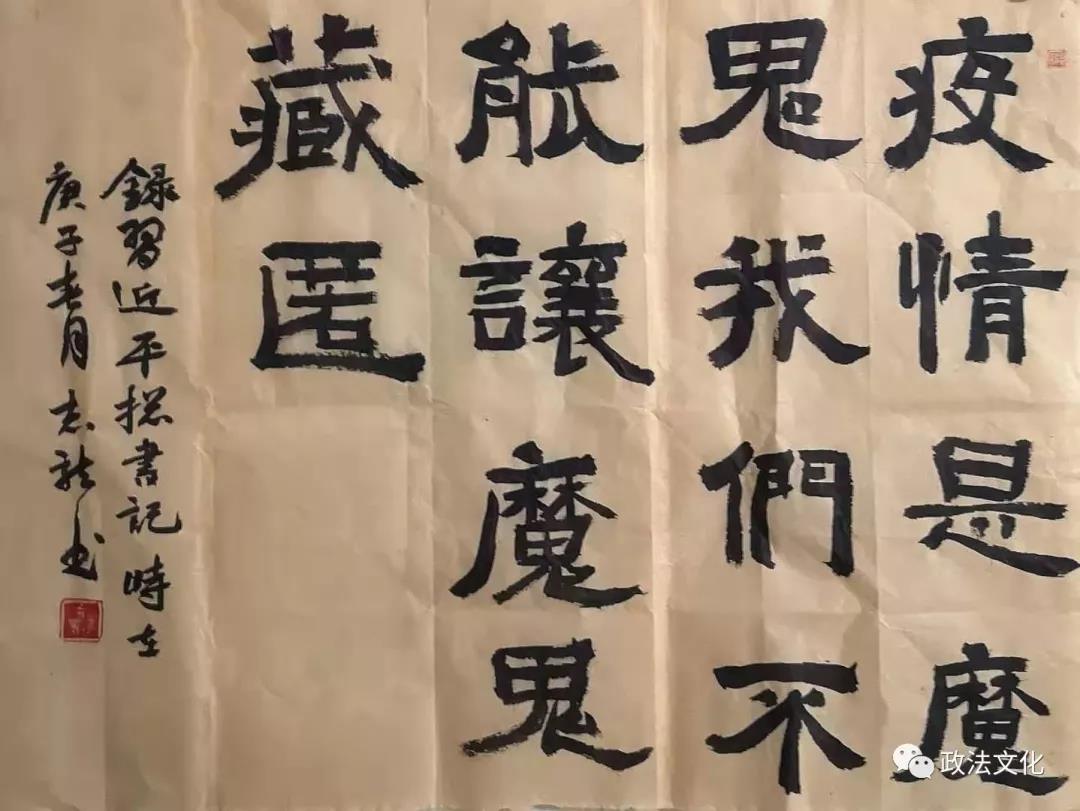 疫情是魔
鬼我們不
能讓魔鬼
藏匿
錄習近平総書記時在
庚子春月志龍书
政法文化